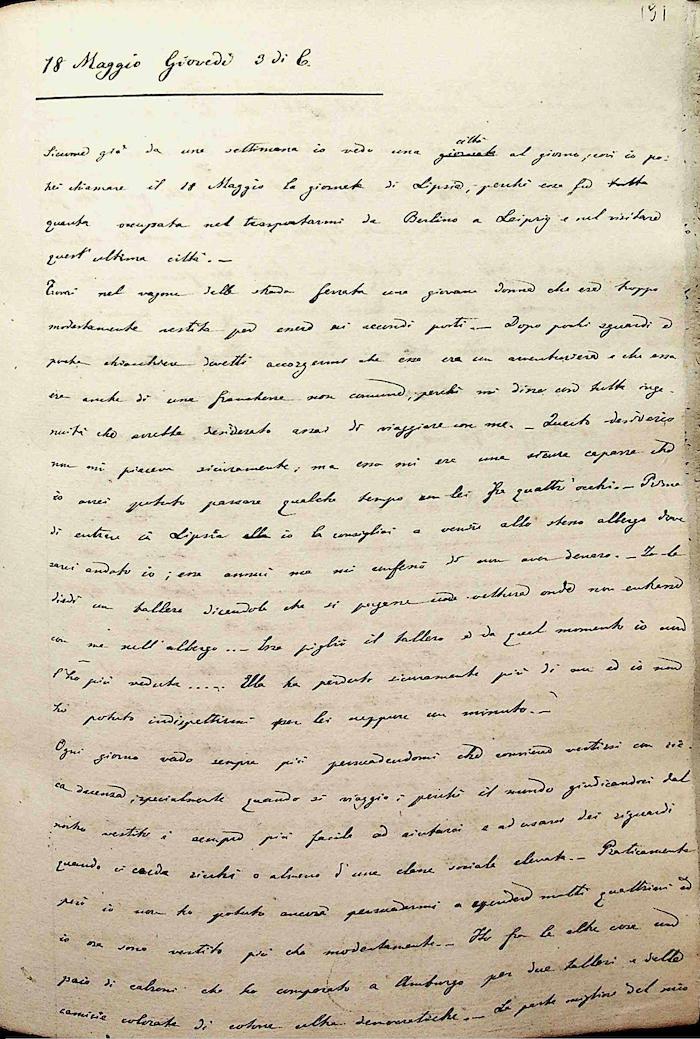 191
18 Maggio Giovedì 3 di C.
Siccome già da una settimana io vedo una giornata città al giorno, così io po-
trei chiamare il 18 Maggio la giornata di Lipsia, perché essa fu tutta
quanta occupata nel trasportarmi da Berlino a Leipzig e nel visitare
quest'ultima città. —
Trovai nel vagone della strada ferrata una giovane donna che era troppo
modestamente vestita per essere nei secondi posti. — Dopo pochi sguardi e
poche chiacchiere dovetti accorgermi che essa era un'avventuriera e che essa
era anche di una franchezza non comune, perché mi disse con tutta inge-
nuità che avrebbe desiderato assai di viaggiare con me. — Questo desiderio
non mi piaceva sicuramente; ma esso mi era una sicura caparra che
io avrei potuto passare qualche tempo con lei fra quattr'occhi. — Prima
di entrare in Lipsia ella io la consigliai a venire allo stesso albergo dove
sarei andato io; essa annuì ma mi confessò di non aver denaro. — Io le
diedi un tallero dicendole che si pagasse una vettura onde non entrasse
con me nell'albergo... — Essa pigliò il tallero e da quel momento io non
l'ho più veduta..... Ella ha perduto sicuramente più di me ed io non
ho potuto indispettirmi per lei neppure un minuto. —
Ogni giorno vado sempre più persuadendomi che conviene vestirsi con
decenza, specialmente quando si viaggia; perché il mondo giudicandoci dal
nostro vestito è sempre più facile ad aiutarci e ad usarci dei riguardi
quando ci creda ricchi o almeno d'una classe sociale elevata. — Praticamente
però io non ho potuto ancora persuadermi a spendere molti quattrini ed
io ora sono vestito più che modestamente. — Ho fra le altre cose un
paio di calzoni che ho comperato a Amburgo per due talleri e delle
camicie colorate di cotone ultra democratiche. — La parte migliore del mio